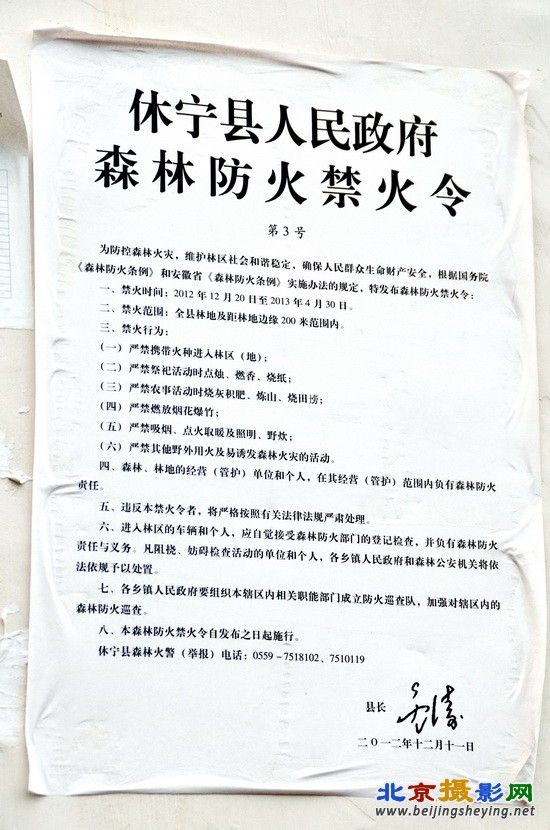 休宁县人民政府
森林防火禁火令
第 3 号
为防控森林火灾，维护林区社会和谐稳定，确保人民群众生命财产安全，根据国务院
《森林防火条例》和安徽省《森林防火条例》实施办法的规定，特发布森林防火禁火令：
一、禁火时间：2012 年 12 月 20 日至 2013 年 4 月 30 日。
二、禁火范围：全县林地及距林地边缘 200 米范围内。
三、禁火行为：
（一）严禁携带火种进入林区（地）；
（二）严禁祭祀活动时点烛、燃香、烧纸；
（三）严禁农事活动时烧灰积肥、炼山、烧田塝；
（四）严禁燃放烟花爆竹；
（五）严禁吸烟、点火取暖及照明、野炊；
（六）严禁其他野外用火及易诱发森林火灾的活动。
四、森林、林地的经营（管护）单位和个人，在其经营（管护）范围内负有森林防火
责任。
五、违反本禁火令者，将严格按照有关法律法规严肃处理。
六、进入林区的车辆和个人，应自觉接受森林防火部门的登记检查，并负有森林防火
责任与义务。凡阻挠、妨碍检查活动的单位和个人，各乡镇人民政府和森林公安机关将依
法依规予以处置。
七、各乡镇人民政府要组织本辖区内相关职能部门成立防火巡查队，加强对辖区内的
森林防火巡查。
八、本森林防火禁火令自发布之日起施行。
休宁县森林火警（举报）电话：0559－7518102、7510119
县长
二〇一二年十二月十一日
北京摄影网
www.beijingsheying.net